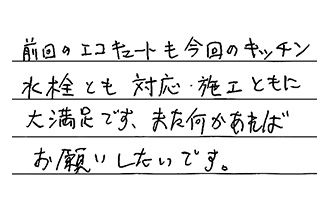 前回のエコキュートも今回のキッチン
水栓とも対応・施工ともに
大満足です、また何かあれば
お願いしたいです。